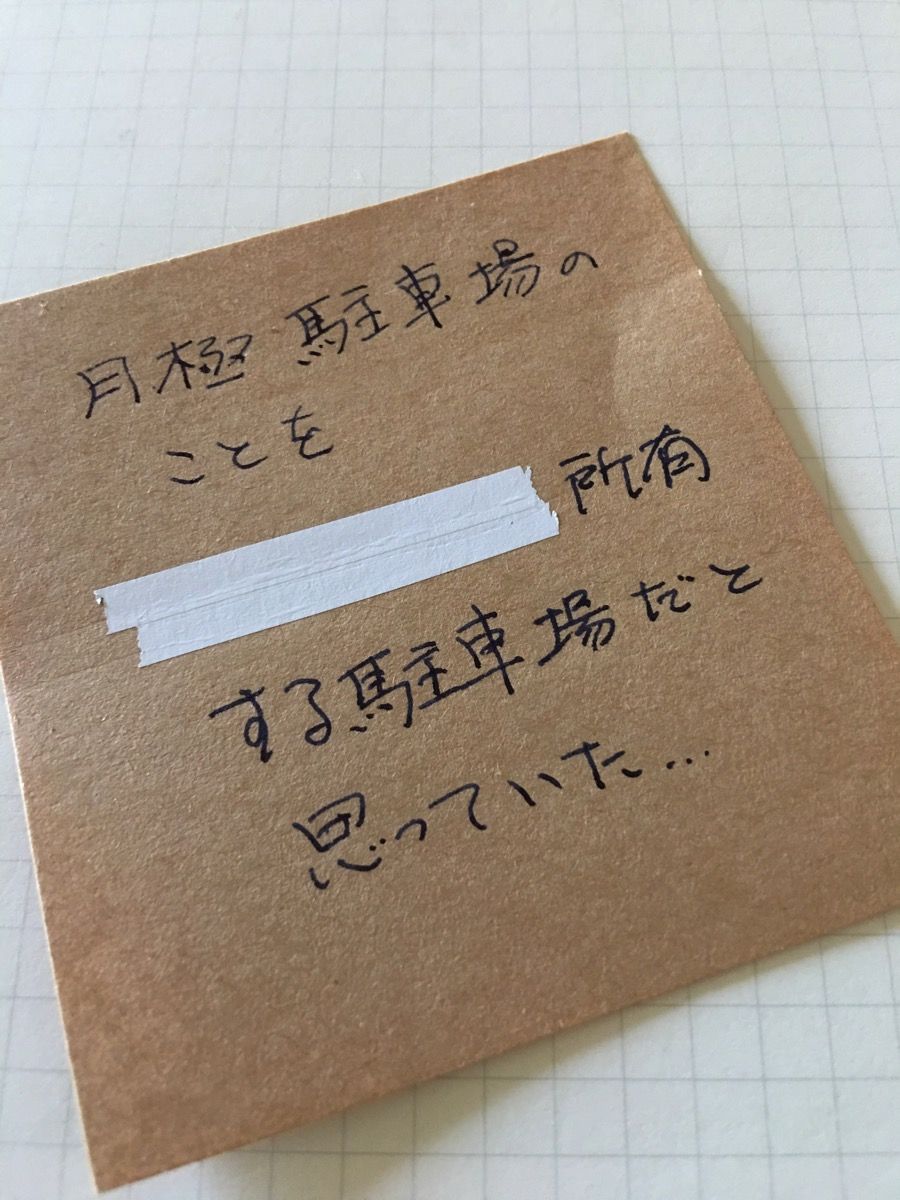 月極駐車場の
ことを
所有
する駐車場だと
思っていた...